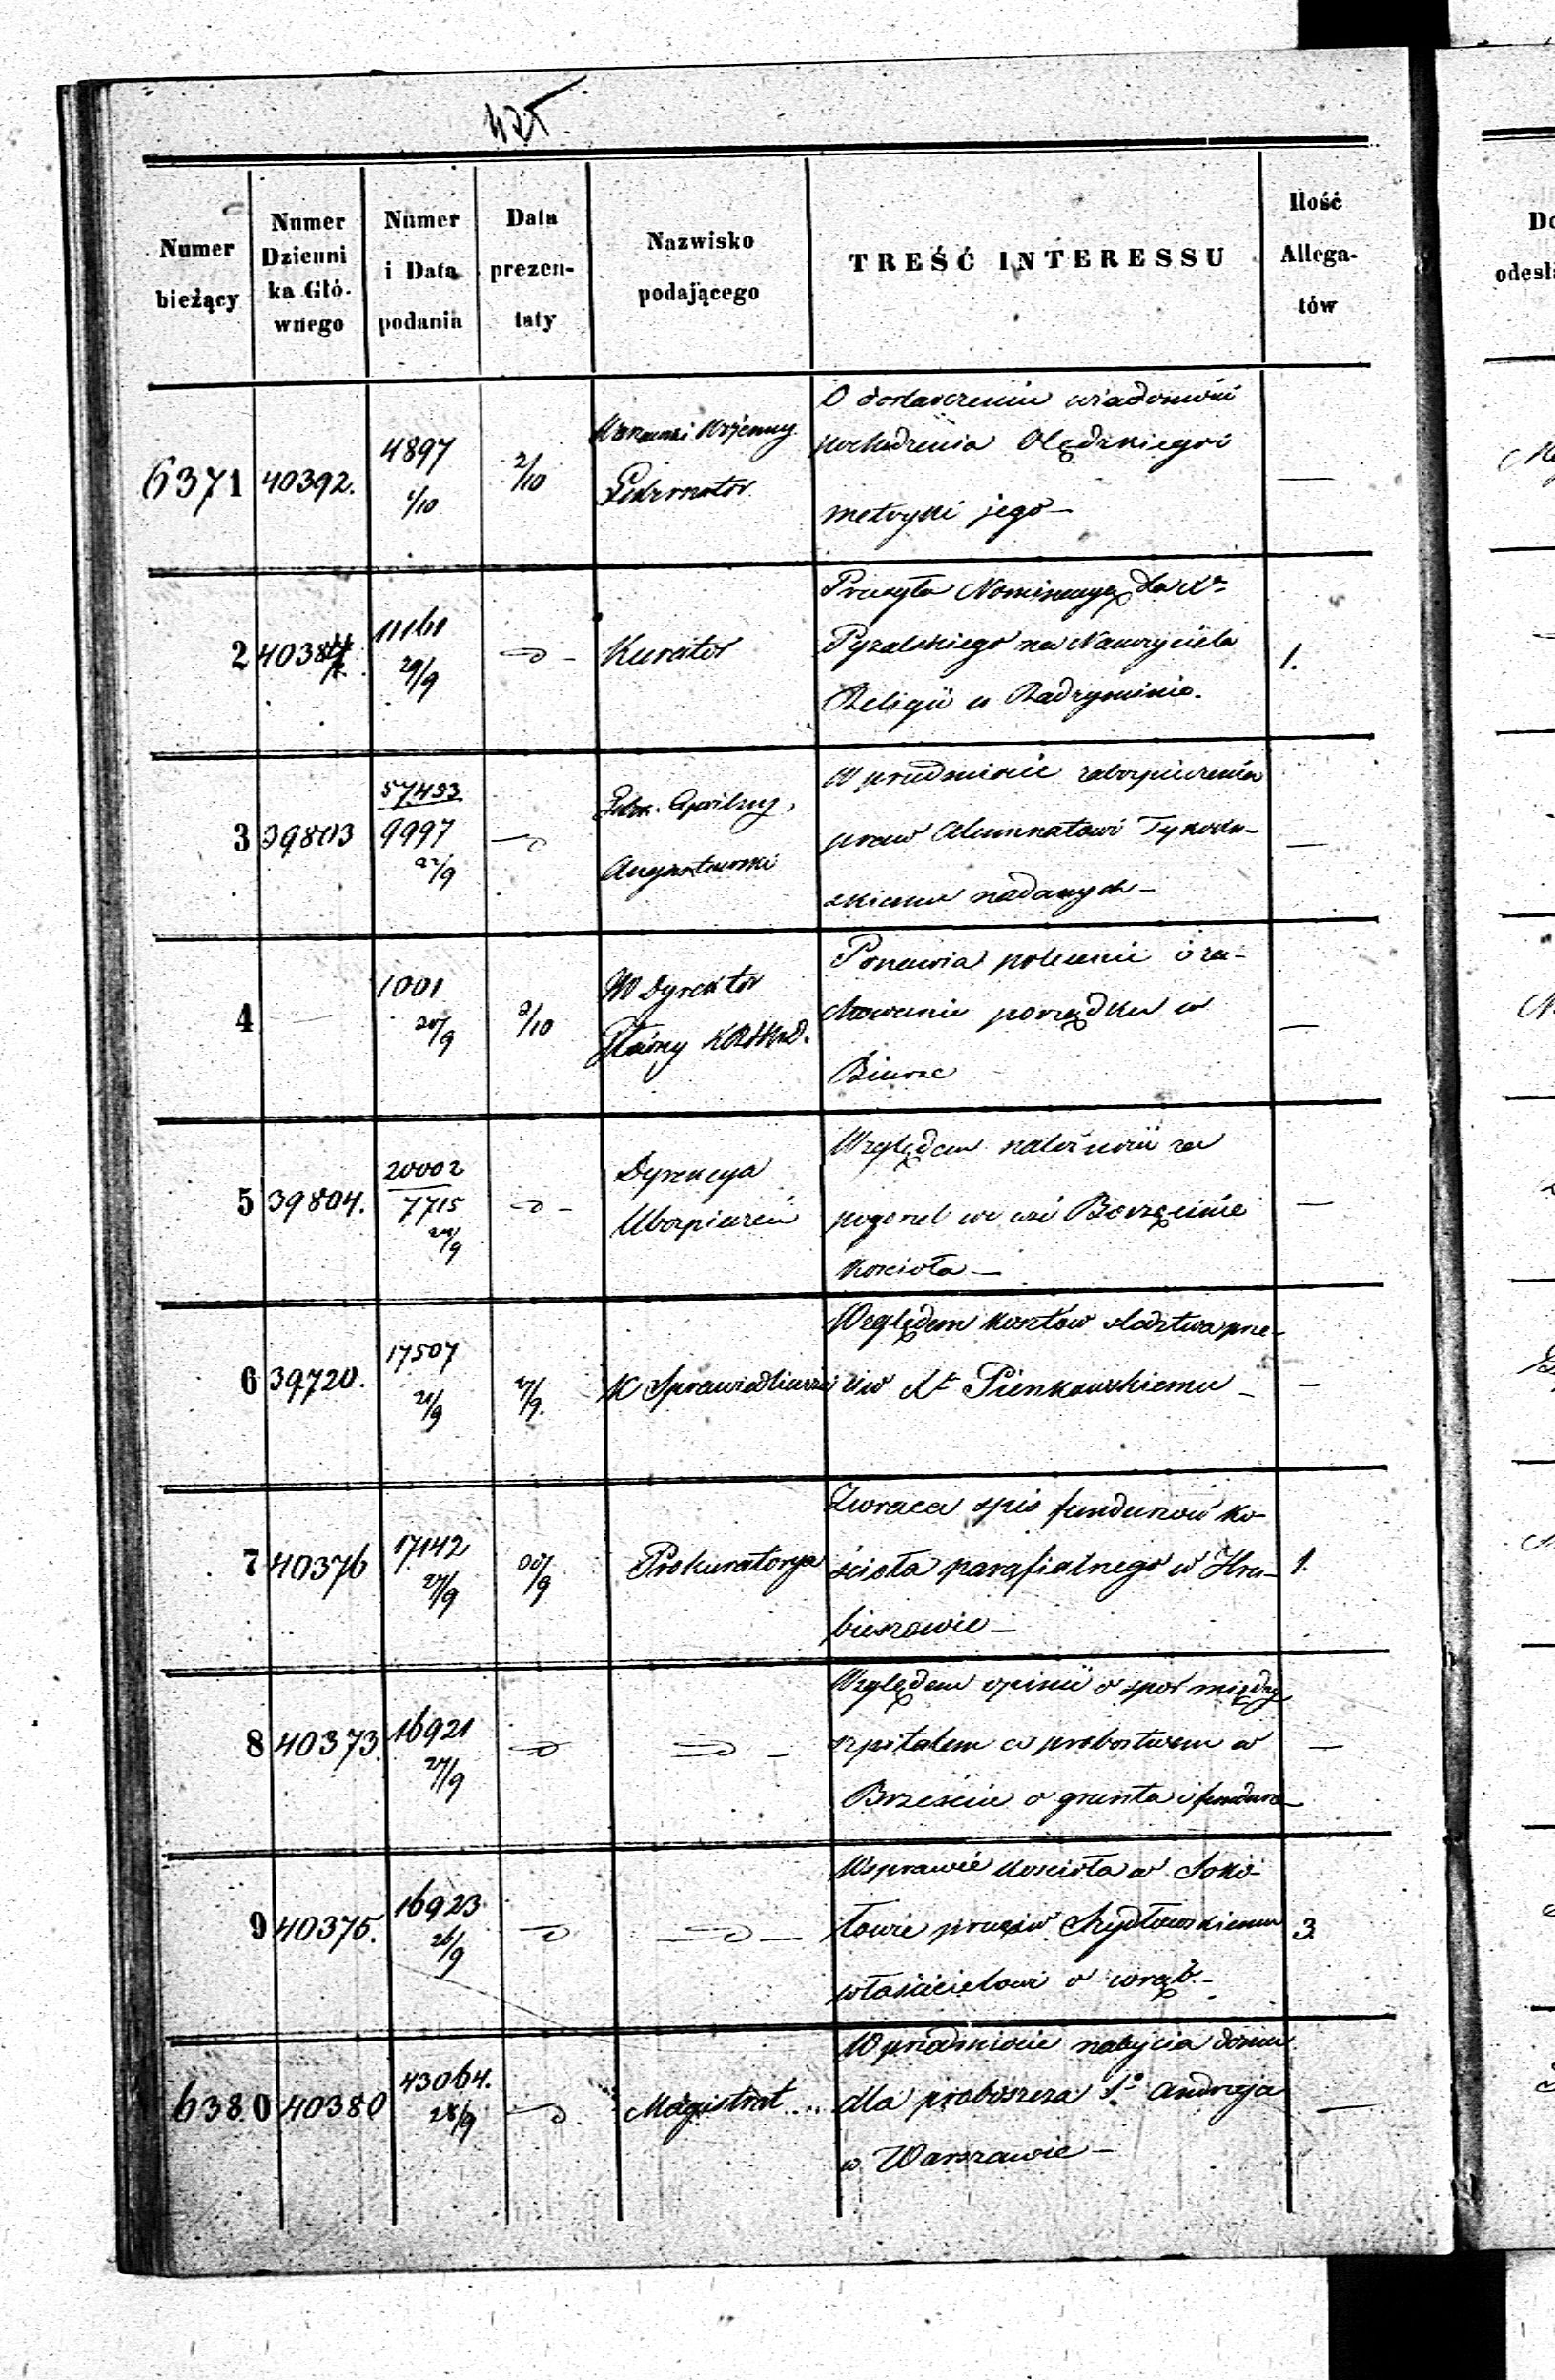 425.
Numer bieżący
Numer Dziennika Głównego
Numer i Data podania
Data prezentaty
Nazwisko podającego
TREŚĆ INTERESSU
Ilość Allegatów
6371 40392. 4897 1/10 2/10 Wojenny Gubernator
O dostarczenie wiadomości
pochodzenia Olędzkiego i
metryki jego —
2 11161 29/9 Kurator
Przesyła Nominacyą dla Xa
Pyzalskiego na Nauczyciela
Religii w Radzyminie. 1.
3 39803 57453 9997 22/9 Gub. Cywilny, Augustowski
W przedmiocie zabezpieczenia
praw Alumnatowi Tykociń-
skiemu nadanych — —
4 — 1001 20/9 2/10 W Dyrektor Główny
Ponawia polecenie o za-
chowanie porządku w
Biurze —
5 39804. 20002 7715 24/9 Dyrekcya Ubezpieczeń
Względem należności za
pogorzel we wsi Borzęcinie
Kościoła — —
6 39720. 17507 21/9 27/9. K Sprawiedliwości
Względem kosztów śledztwa prze-
ciw Xt Pienkowskiemu — —
7 40376 17142 27/9 30/9 Prokuratorya
Zwraca spis funduszów ko-
ścioła parafialnego w Hru- 1.
bieszowie —
8 40373. 16921 27/9
Względem opinii o spór między
szpitalem a probostwem w —
Brześciu o grunta i fundusz —
9 40375. 16923 26/9
W sprawie kościoła w Soko-
łowie przeciw Szydłowskiemu 3.
właścicielowi o wrąb. —
6380 40380 43064. 28/9 Magistrat
W przedmiocie nabycia domu
dla proboszcza Sgo Andrzeja —
w Warszawie —